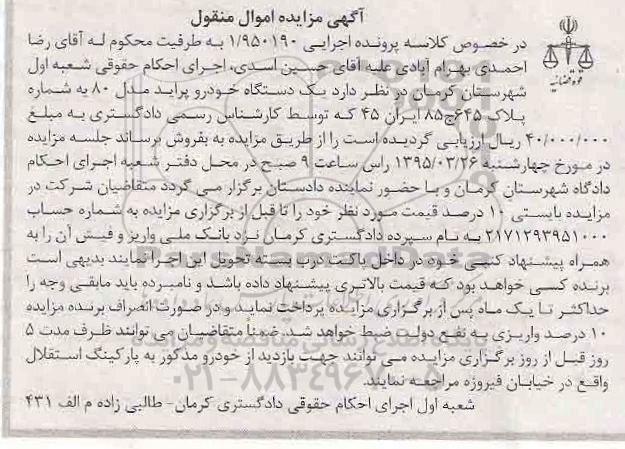 آگهی مزایده اموال منقول
قوه قضائیه
در خصوص کلاسه پرونده اجرایی ۱/۹۵۰۱۹۰ به طرفیت محکوم له آقای رضا
احمدی بهرام آبادی علیه آقای حسین اسدی، اجرای احکام حقوقی شعبه اول
شهرستان کرمان در نظر دارد یک دستگاه خودرو پراید مدل ۸۰ به شماره
پلاک ۶۴۵ج۸۵ ایران ۴۵ که توسط کارشناس رسمی دادگستری به مبلغ
۴۰/۰۰۰/۰۰۰ ریال ارزیابی گردیده است را از طریق مزایده به بفروش برساند جلسه مزایده
در مورخ چهارشنبه ۱۳۹۵/۰۳/۲۶ راس ساعت ۹ صبح در محل دفتر شعبه اجرای احکام
دادگاه شهرستان کرمان و با حضور نماینده دادستان برگزار می گردد متقاضیان شرکت در
مزایده بایستی ۱۰ درصد قیمت مورد نظر خود را تا قبل از برگزاری مزایده به شماره حساب
۲۱۷۱۲۹۳۹۵۱۰۰۰ به نام سپرده دادگستری کرمان نزد بانک ملی واریز و فیش آن را به
همراه پیشنهاد کتبی خود در داخل پاکت درب بسته تحویل این اجرا نمایند بدیهی است
برنده کسی خواهد بود که قیمت بالاتری پیشنهاد داده باشد و نامبرده باید مابقی وجه را
حداکثر تا یک ماه پس از برگزاری مزایده پرداخت نماید و در صورت انصراف برنده مزایده
۱۰ درصد واریزی به نفع دولت ضبط خواهد شد. ضمناً متقاضیان می توانند ظرف مدت ۵
روز قبل از روز برگزاری مزایده می توانند جهت بازدید از خودرو مذکور به پارکینگ استقلال
واقع در خیابان فیروزه مراجعه نمایند.
شعبه اول اجرای احکام حقوقی دادگستری کرمان- طالبی زاده م الف ۴۳۱